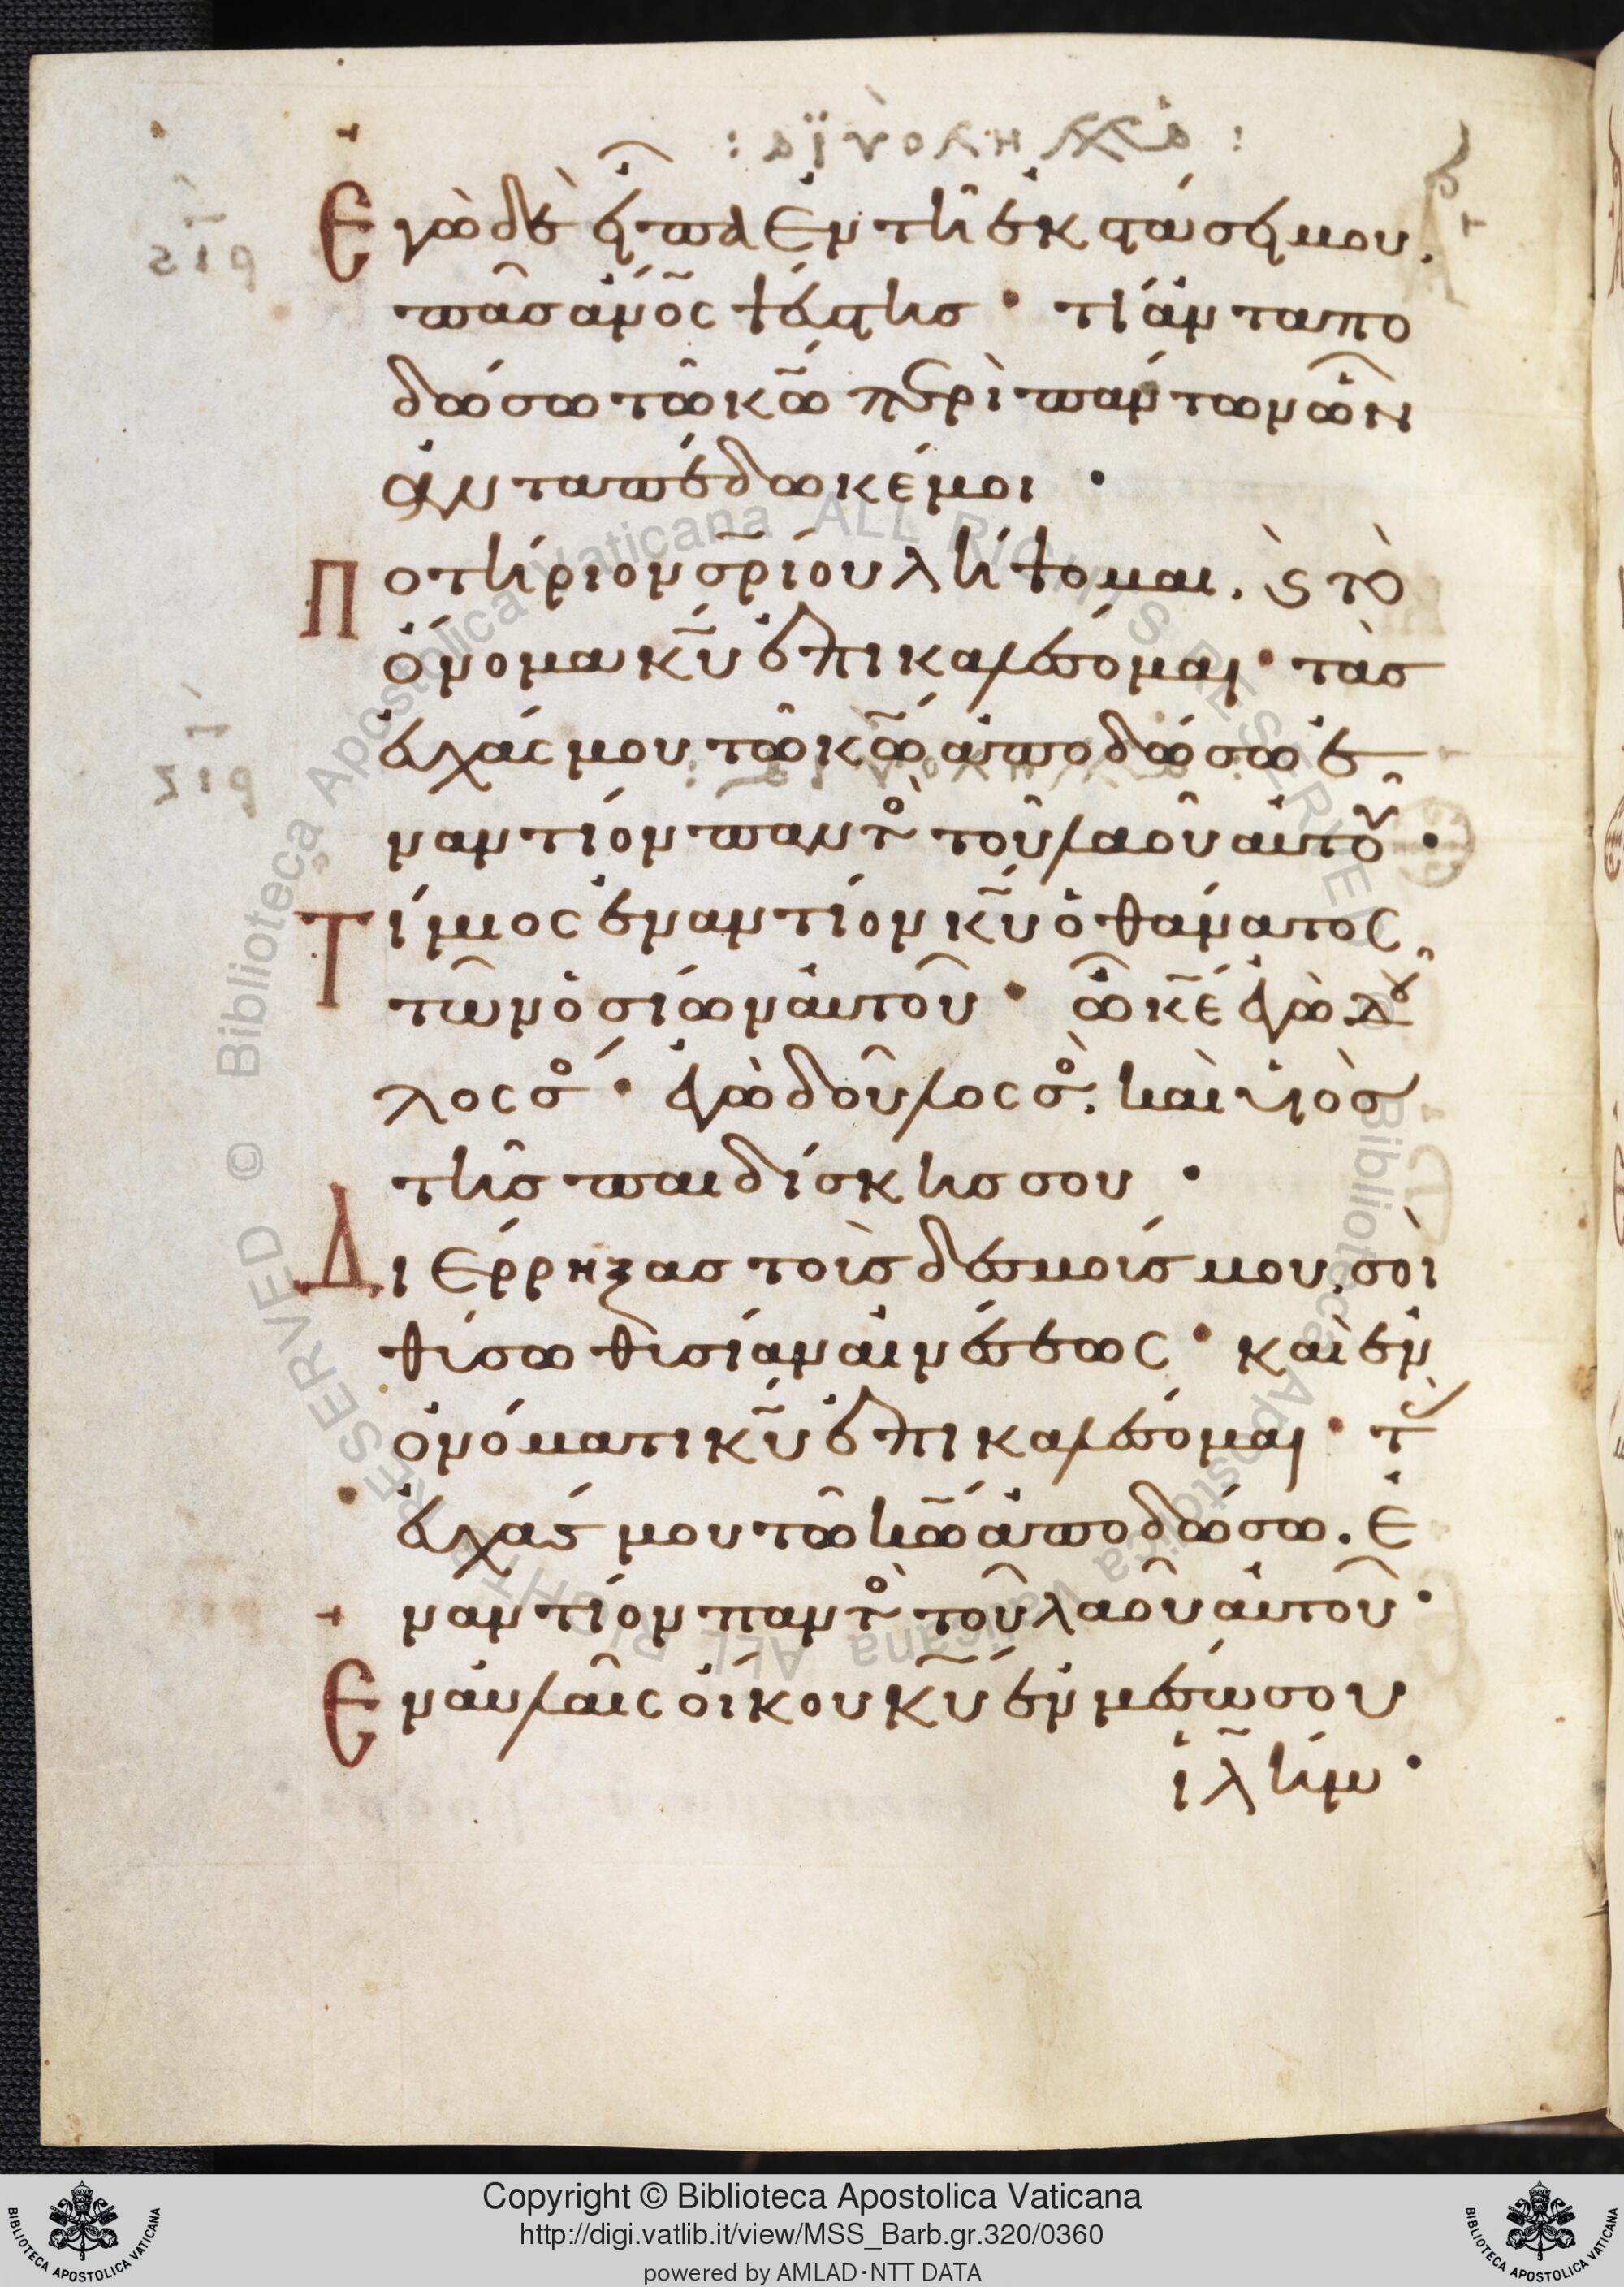 Ἐγὼ δὲ εἶπα ἐν τῆ ἐκστάσει μου.
πᾶς ἀν̅ο̅ς ψεύστης · τί ἀνταπο
δώσω τῶ κ̅ω̅ περὶ πάντων ὧν
ἀνταπέδωκέ μοι ·
Ποτήριον σ̅ρ̅ίου λήψομαι. ϗ τὸ
ὄνομα κ̅υ̅ ἐπικαλέσομαι · τὰς
εὐχάς μου τῶ κ̅ω̅ ἀποδώσω ἐ
ναντίον παντὸς τοῦ λαοῦ αὐτοῦ ·
Τίμιος ἐναντίον κ̅υ̅ ὁ θάνατος
τῶν ὁσίων αὐτοῦ · ὦ κ̅ε̅ ἐγὼ δοῦ
λος σός · ἐγὼ δοῦλος σός. καὶ υἱὸς
τῆς παιδίσκης σου ·
Διέρρηξας τοὺς δεσμούς μου. σοὶ
θύσω θυσίαν αἰνέσεως · καὶ ἐν
ὀνόματι κ̅υ̅ ἐπικαλέσομαι · τὰς
εὐχάς μου τῶ κ̅ω̅ ἀποδώσω. ἐ
ναντίον παντὸς τοῦ λαοῦ αὐτοῦ ·
Ἐν αὐλαῖς οἴκου κ̅υ̅ ἐν μέσω σου
ἰ̅λ̅ήμ ·
Copyright © Biblioteca Apostolica Vaticana
http://digi.vatlib.it/view/MSS_Barb.gr.320/0360
powered by AMLAD·NTT DATA